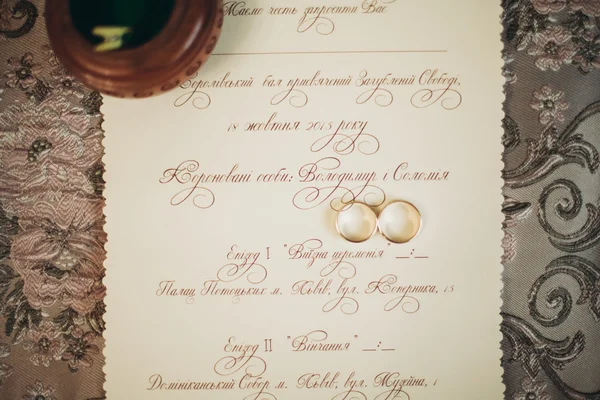 Маємо честь запросити Вас
Королівський бал присвячений Загубленій Свободі,
18 жовтня 2015 року
Короновані особи: Володимир і Соломія
Епізод I "Виїзна церемонія" __:__
Палац Потоцьких м. Львів, вул. Коперника, 15
Епізод II "Вінчання" __:__
Домініканський Собор м. Львів, вул. Музейна, 1